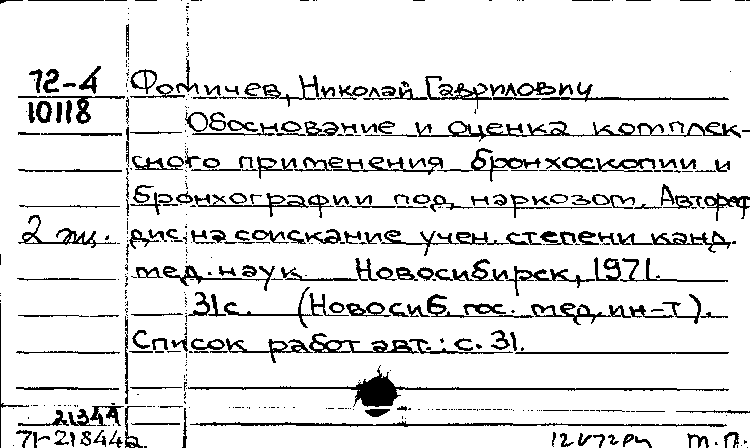 72-4 Фомичев, Николай Гаврилович
10118
Обоснование и оценка комплек-
сного применения бронхоскопии и
бронхографии под наркозом. Автореф
2 экз. дис. на соискание учен. степени канд.
мед. наук Новосибирск, 1971.
31с. (Новосиб. гос. мед. ин-т).
Список работ авт.: с. 31.
21344
71-21844а т.п.